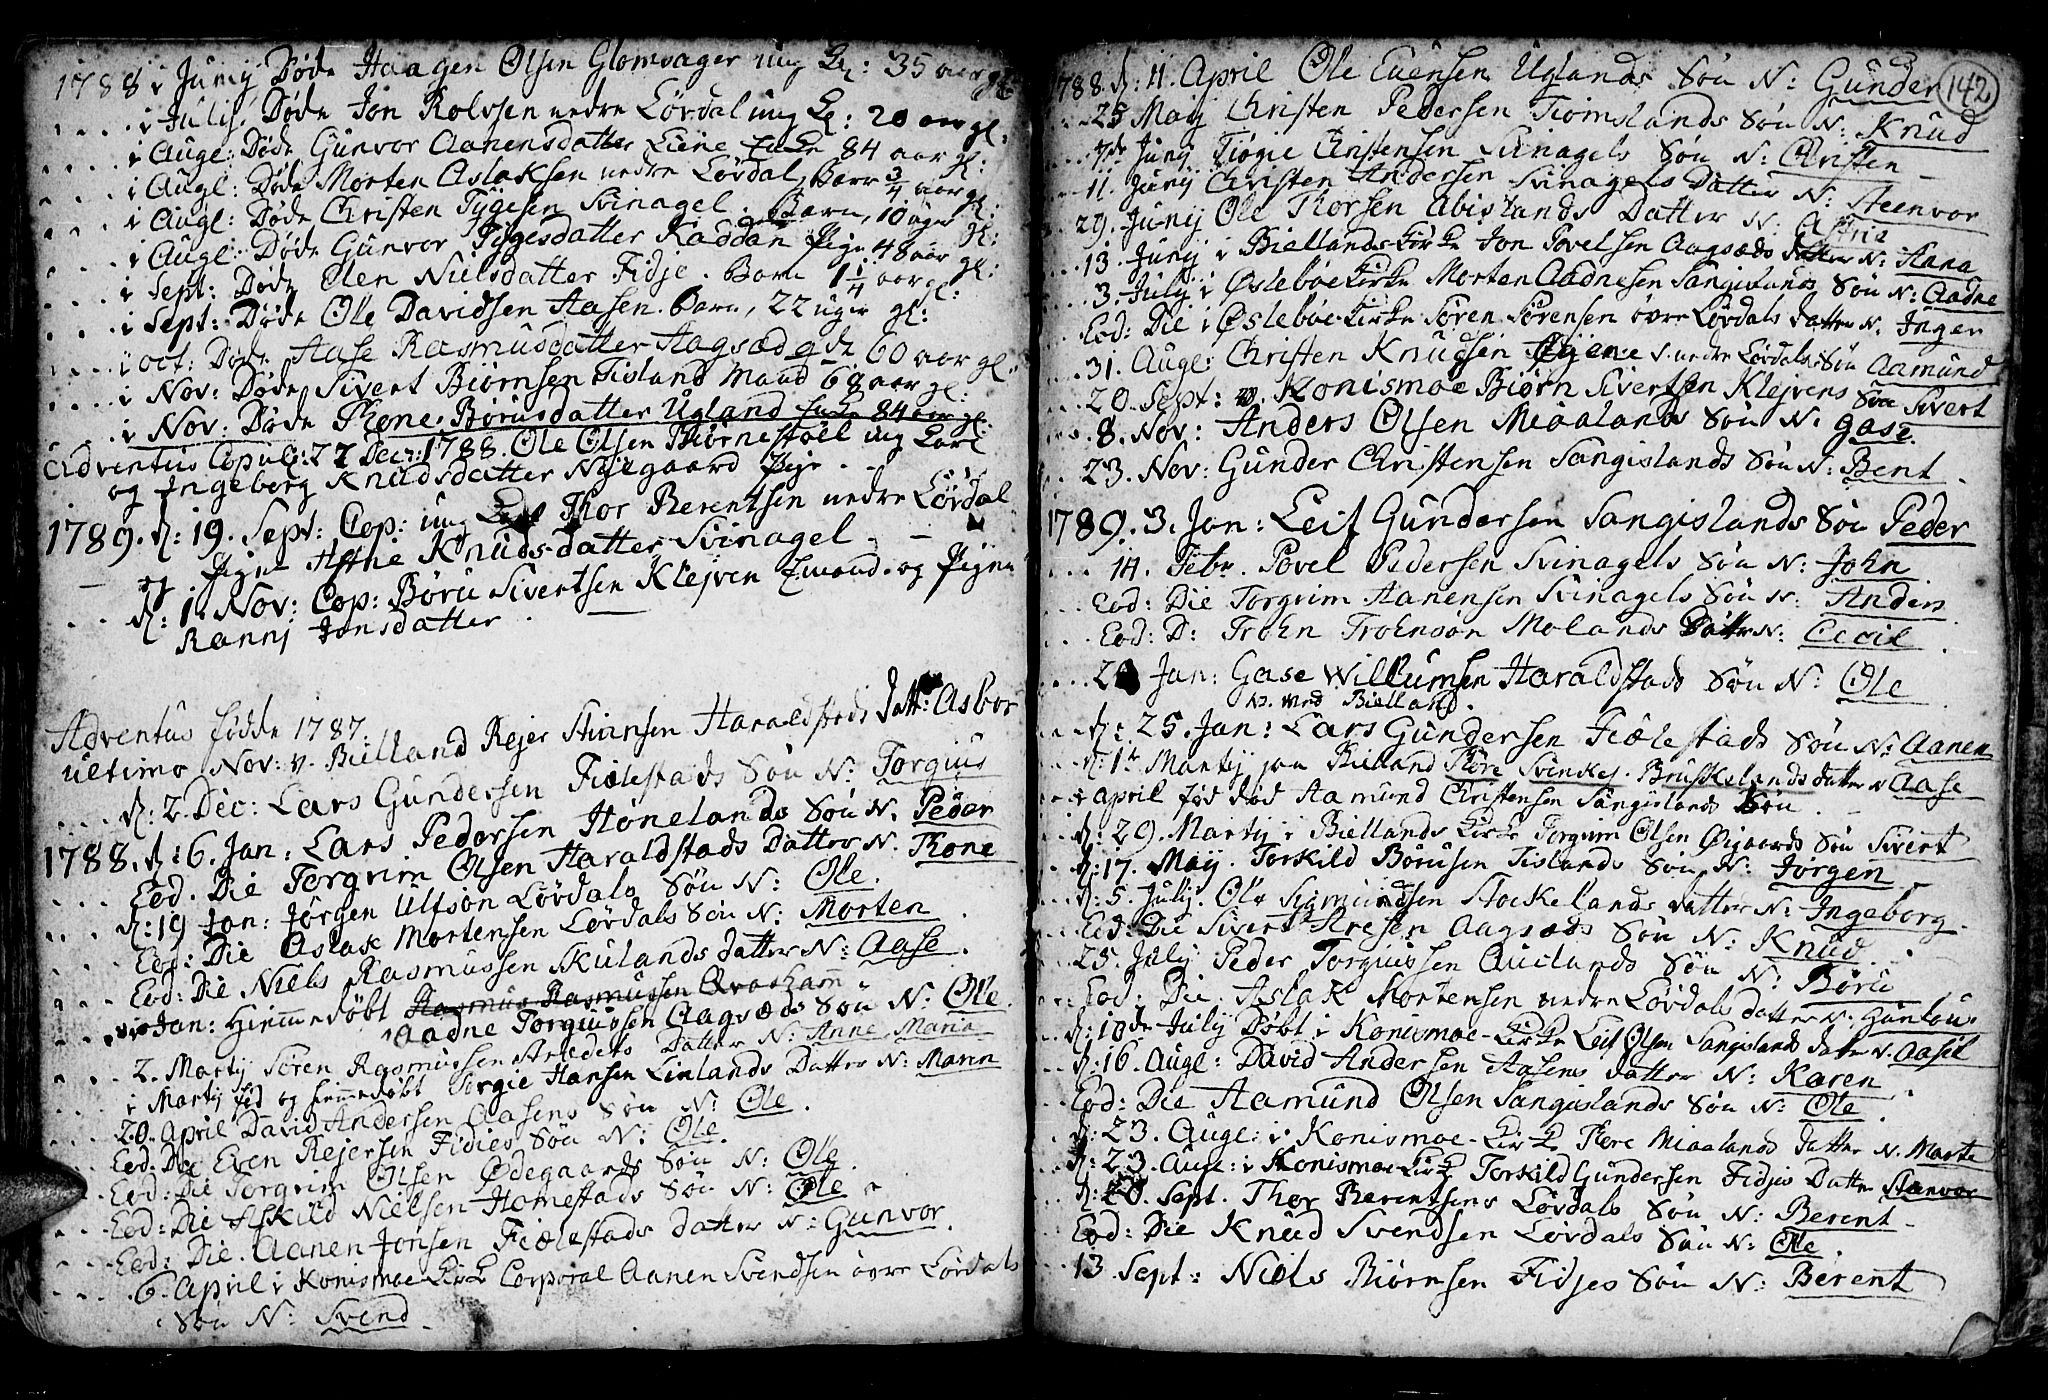 1788 i Junij Døde Haagen Olsen Glomsager ung K: 35 aar gl:
i Julij. Døde Jon Rolvsen nedre Lövdal ung K: 20 aar gl:
i Augl: Døde Gunvor Aanensdatter Liene Enke 84 aar gl:
i Augl: Døde Morten Aslaksen nedre Lövdal, Barn 3/4 aar gl:
i Augl: Døde Christen Tÿgesen Svinagel. Barn, 10 uger gl:
i Augl: Døde Gunvor Tÿgesdatter Kaddan Pige 48 aar gl:
i Sept: Døde Olen Nielsdatter Fidje. Barn 1 1/4 aar gl:
i Sept: Døde Ole Davidsen Aasen. Barn, 22 uger gl:
i oct: Døde Aase Rasmusdatter Aagsæd 60 aar gl:
i Nov: Døde Sivert Biørnsen Tisland Mand 68 aar gl:
i Nov: Døde Thone Børusdatter Ugland Enke 84 aar gl:
Adventus Copul: 27 Decr: 1788. Ole Olsen Biørnestöel ung Karl
og Ingeborg Knudsdatter Nÿegaard Pige. -
1789. d: 19. Sept: Cop: ung Thor Berentsen nedre Lövdal
og Pigen Asthe Knudsdatter Svinagel - -
d: 1. Nov: Cop: Børu Sivertsen Klejven Emand og Pigen
Rannj Jonsdatter.
Adventus fødde 1787.
ultimo Nov: v. Bielland Rejer Stinnsen Haraldstads datt: Asbor
d: 2. Dec: Lars Gundersen Fiælestads Søn N: Torgius
1788. d: 6. Jan: Lars Pedersen Hönelands Søn N. Peder
Eod. Die Torgrim Olsen Haraldstads Datter N. Thone
d: 19 Jan: Jørgen Ulfsøn Lövdals Søn N: Ole.
Eod: Die Aslak Mortensen Lövdals Søn N: Morten
Eod: Die Niels Rasmussen Skulands datter N: Aase.
Jan: Hiemmedøbt Rasmus Rasmussen
Aadne Torgiussen Aagsæds Søn N: Ole.
2. Martij Søren Rasmussen Datter N: Anne Maria
i Martij fød og hiemmedøbt Torgie Hansen Linlands Datter N: Maren
20. April David Andersen Aasens Søn N: Ole.
Eod. Die Even Rejersen Fidjes Søn N: Ole.
Eod: Die Torgrim Olsen Ødegaards Søn N: Ole.
Eod: Die Askild Nielsen Homestads Søn N: Ole
Eod: Die. Aanen Jonsen Fiælestads Datter N: Gunvor.
6. April i Konismoe Kirke Corporal Aanen Svendsen övre Lövdals
Søn N: Svend
142
1788. d: 11. April Ole Evensen Uglands Søn N: Gunder
25 Maij Christen Pedersen Tiomslands Søn N: Knud
7de Junij Tiøgie Christensen Svinagels Søn N: Christen
11. Junij Christen Andersen Svinagels Datter N: Steenvor
29. Junij Ole Thorsen Abislands Datter N: Astrie
13. Junij i Biellands Kirke Jon Povelsen Aagsæds datter N: Hana
3. Julij i Øslebøe Kirke Morten Aadnesen Sangislands Søn N: Aadne
Eod: Die i Øslebøe Kirke Søren Sørensen övre Lövdals datter N. Inger
31. Augl: Christen Knudsen v. nedre Lövdals Søn Aamund
20. Sept: v. Konismoe Biørn Sivertsen Klejvens Søn Sivert
8. Nov: Anders Olsen Meaalands Søn N. Gase.
23. Nov: Gunder Christensen Sangislands Søn N: Bent
1789. 3. Jan: Leif Gundersen Sangislands Søn Peder
14. Febr. Povel Pedersen Svinagels Søn N: John
Eod: Die Torgrim Aanensen Svinagels Søn N: Anders
Eod: D: Troen Troensøn Molands Datter N: Cecil
Jan: Gase Willumsen Haraldstads Søn N: Ole
v. ved Bielland.
d: 25. Jan: Lars Gundersen Fiælestads Søn N: Aanen
d: 1te Martij paa Bielland Thore Svenkes. Bruskelands datter N Aase
i april fød død Aamund Christensen Sangislands Søn
d: 29. Martij i Biellands Kirke Torgrim Olsen Øigaards Søn Sivert
d: 17. Maij. Torkild Børusen Tislands Søn N: Jørgen
d: 5. Julij. Ole Sigmundsen Stockelands datter N: Ingeborg.
Eod: Die Sivert Aagsæds Søn N: Knud.
25. Julij Peder Torgiussen Auclands Søn N: Børu
Eod: Die: Aslak Mortensen nedre Lövdals datter N: Gunlou
d: 10de Julij Døbt i Konismoe-Kirke Leif Olsen Sangislands datter N. Aasel
d: 16. Augl: David Andersen Aasens datter N: Karen
Eod: Die Aamund Olsen Sangislands Søn N: Ole.
d: 23. Augl: i Konismoe-Kirke Thore Miaalands datter N. Marte
d: 23. Augl: i Konismoe Kirke Torkild Gundersen Fidjes Datter Stenvor
d: 20. Sept. Thor Berentsens Lövdals Søn N: Berent
Eod: Die Knud Svendsen Lövdals Søn N: Ole.
13 Sept: Niels Biørnsen Fidjes Søn N: Berent